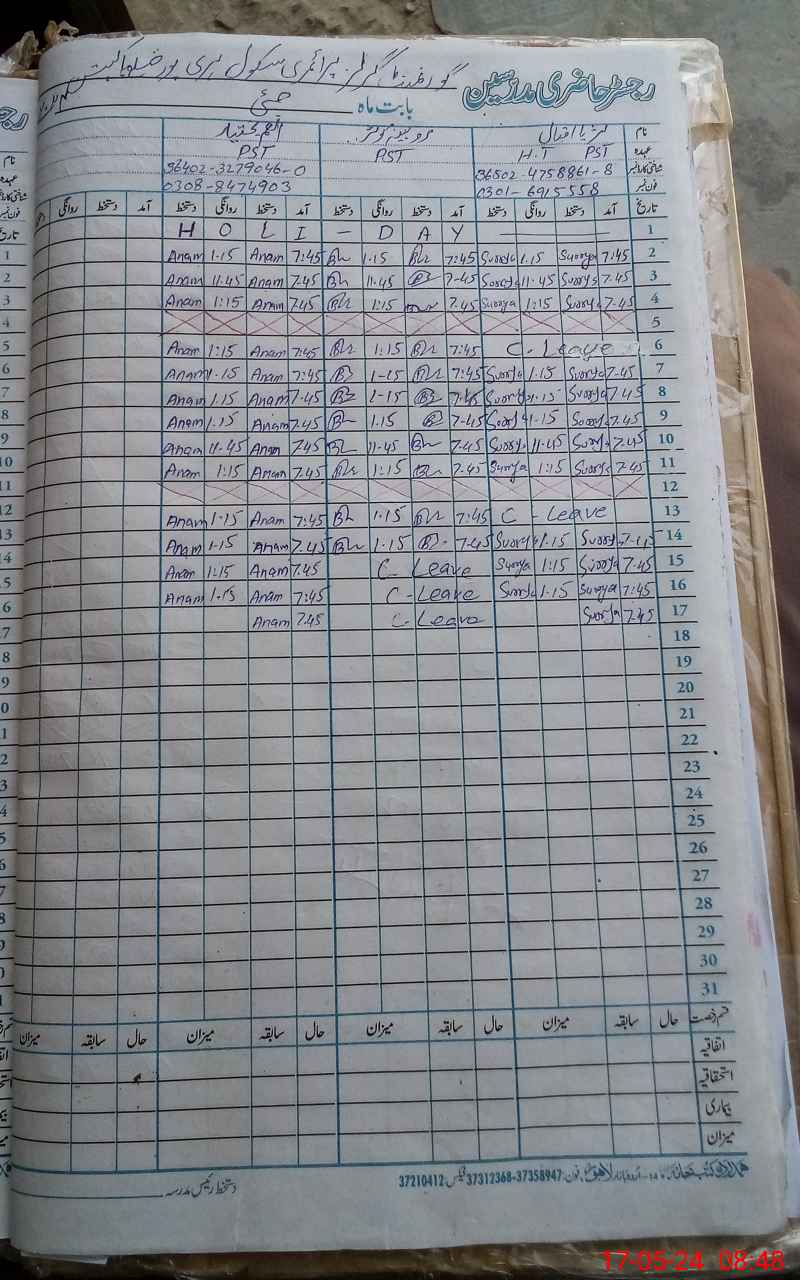 رجسٹر حاضری مدرسین
گورنمنٹ گرلز پرائمری سکول ہری پور
بابت ماہ مئی
نام ثریا اقبال
عہدہ PST H.T PST PST
شناختی کارڈ نمبر 36502-4758861-8 36402-3279046-0
فون نمبر 0301-6915558 0308-8474903
تاریخ آمد دستخط روانگی دستخط آمد دستخط روانگی دستخط آمد دستخط روانگی دستخط آمد دستخط روانگی
H O L I - D A Y 1
Anam 1-15 Anam 7:45 1-15 7:45 Surrya 1.15 Surrya 7:45 2
Anam 11.45 Anam 7.45 11.45 7-45 Surrya 11.45 Surrya 7.45 3
Anam 1:15 Anam 7.45 1:15 7.45 Surrya 1:15 Surrya 7.45 4
5
Anam 1:15 Anam 7:45 1:15 7:45 C-Leave 6
Anam 1.15 Anam 7:45 1-15 7:45 Surrya 1.15 Surrya 7.45 7
Anam 1.15 Anam 7.45 1-15 7.45 Surrya 1.15 Surrya 7.45 8
Anam 1.15 Anam 7.45 1.15 7-45 Surrya 1-15 Surrya 7.45 9
Anam 11.45 Anam 7.45 11-45 7-45 Surrya 11-45 Surrya 7.45 10
Anam 1:15 Anam 7.45 1:15 7.45 Surrya 1:15 Surrya 7-45 11
12
Anam 1.15 Anam 7:45 1.15 7:45 C-Leave 13
Anam 1-15 Anam 7.45 1.15 7-45 Surrya 1.15 Surrya 14
Anam 1:15 Anam 7.45 C-Leave Surrya 1:15 Surrya 7.45 15
Anam 1.15 Anam 7:45 C-Leave Surrya 1.15 Surrya 7:45 16
Anam 7.45 C-Leave Surrya 7.45 17
18
19
20
21
22
23
24
25
26
27
28
29
30
31
قسم رخصت حال سابقہ میزان حال سابقہ میزان حال سابقہ میزان حال سابقہ میزان
اتفاقیہ
استحقاقیہ
بیماری
میزان
اردو بازار لاہور، فون: 37312368-37358947 فیکس: 37210412
دستخط رئیس مدرسہ
17-05-24 08:48